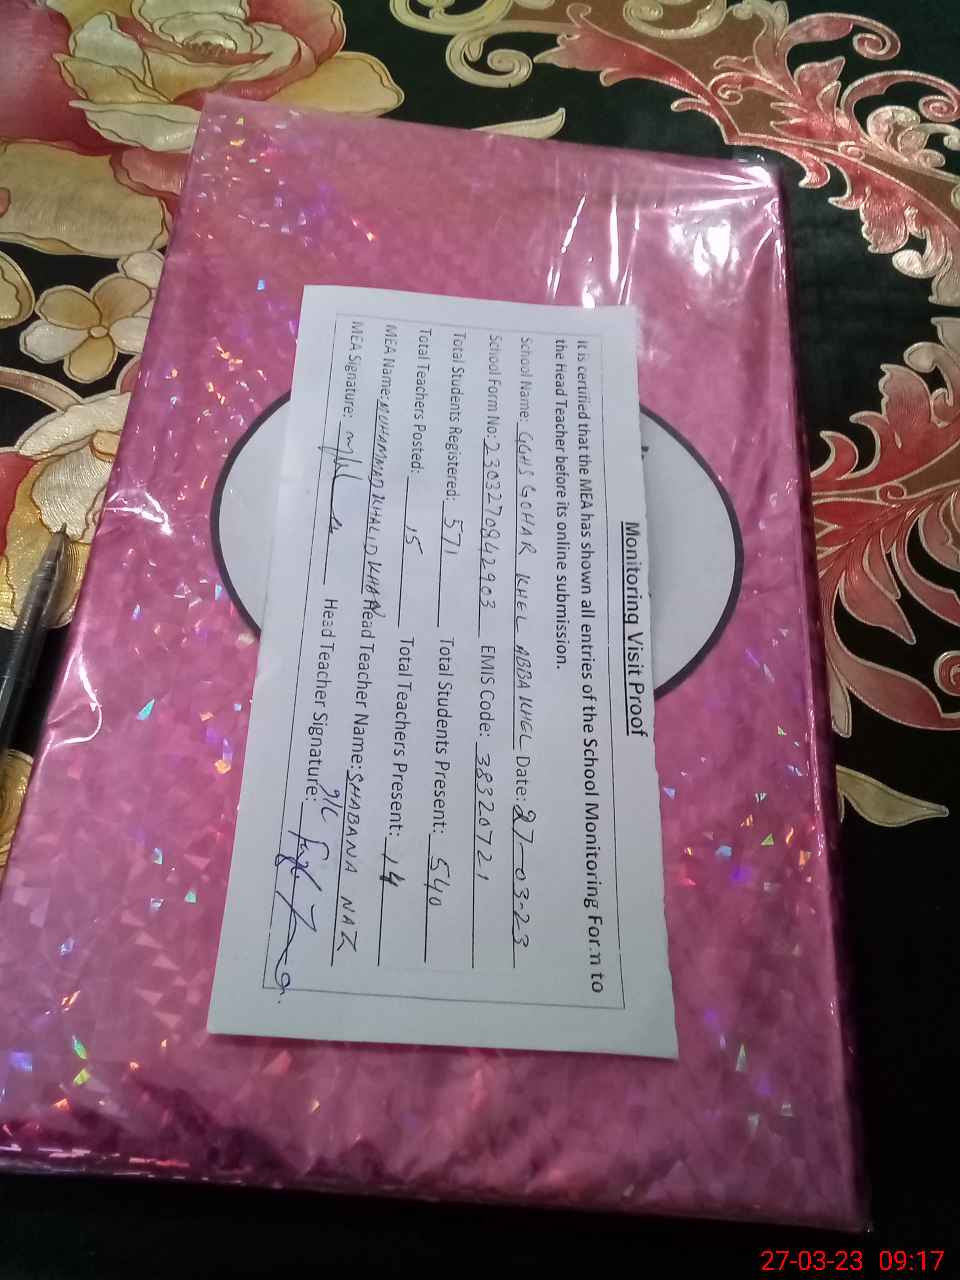 Monitoring Visit Proof
It is certified that the MEA has shown all entries of the School Monitoring Form to
the Head Teacher before its online submission.
School Name: GGHS GOHAR KHEL ABBA KHEL Date: 27-03-23
School Form No: 2303270842903 EMIS Code: 38320721
Total Students Registered: 571 Total Students Present: 540
Total Teachers Posted: 15 Total Teachers Present: 14
MEA Name: MUHAMMAD KHALID KHAN Head Teacher Name: SHABANA NAZ
MEA Signature: Head Teacher Signature:
27-03-23 09:17